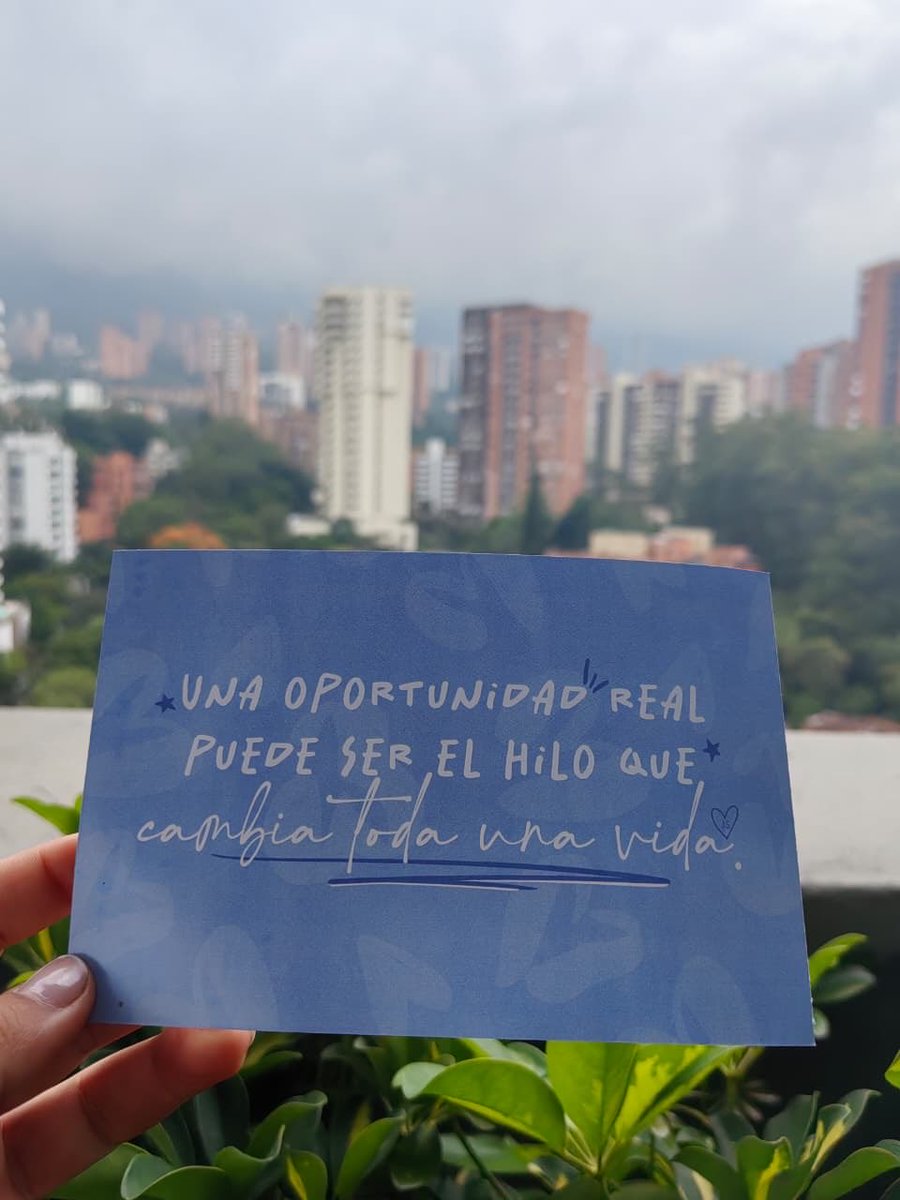 UNA OPORTUNIDAD REAL
PUEDE SER EL HILO QUE
cambia toda una vida.